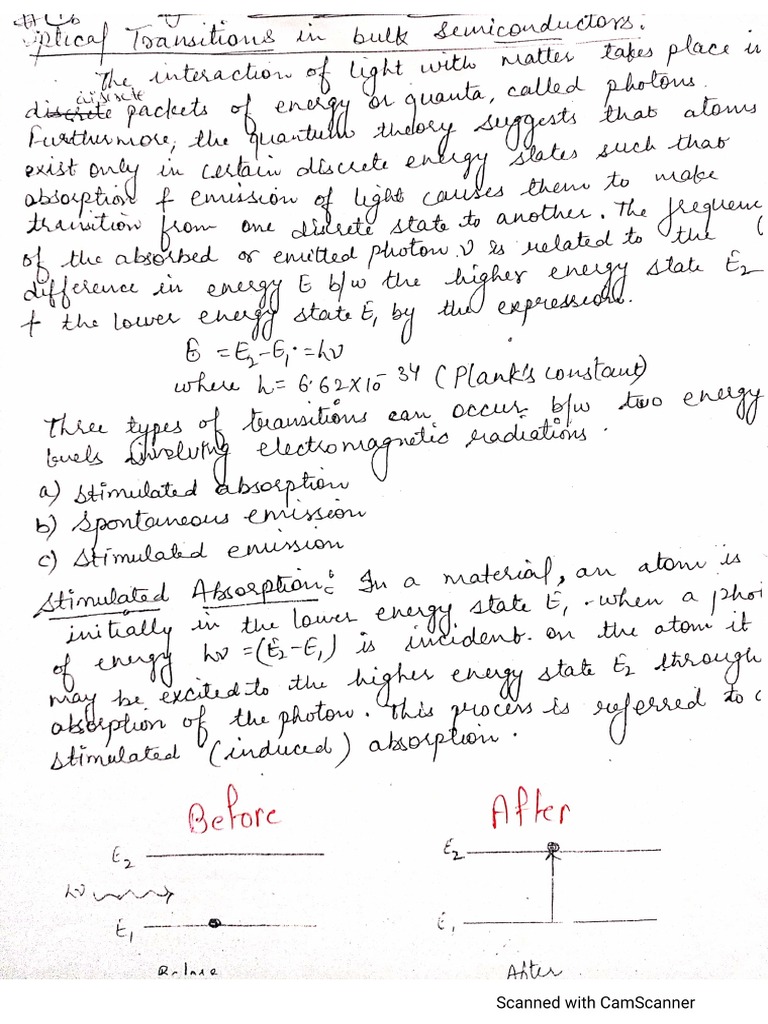 Optical Transitions in bulk semiconductors.
The interaction of light with matter takes place in
discrete
discrete packets of energy or quanta, called photons.
Furthermore, the quantum theory suggests that atoms
exist only in certain discrete energy states such that
absorption & emission of light causes them to make
transition from one discrete state to another. The frequen
of the absorbed or emitted photon ν is related to the
difference in energy E b/w the higher energy state E2
& the lower energy state E1 by the expression.
E = E2-E1 = hν
where h = 6.62×10-34 (Plank's constant)
Three types of transitions can occur b/w two energy
levels involving electromagnetic radiations.
a) Stimulated absorption
b) Spontaneous emission
c) Stimulated emission
Stimulated Absorption: In a material, an atom is
initially in the lower energy state E1. when a pho
of energy hν = (E2-E1) is incident on the atom it
may be excited to the higher energy state E2 through
absorption of the photon. This process is referred to
stimulated (induced) absorption.
Before After
E2 E2
hν
E1 E1
Before After
Scanned with CamScanner